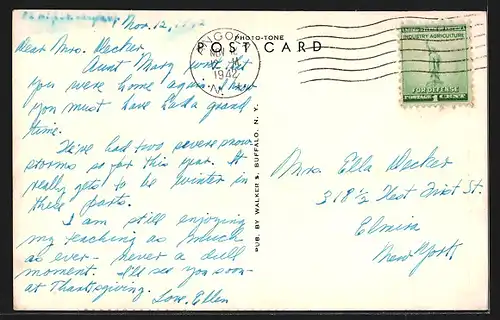 Nov. 12, 1942
Dear Mrs. Decker
Aunt Mary wrote that
you were home again. I know
you must have had a grand
time.
We've had two severe snow
storms so far this year. It
really gets to be winter in
these parts.
I am still enjoying
my teaching as much
as ever - never a dull
moment. I'll see you soon -
at Thanksgiving.
Love, Ellen
PHOTO-TONE
POST CARD
NOV
1942
N.Y.
PUB. BY WALKER S. BUFFALO, N. Y.
UNITED STATES OF AMERICA
INDUSTRY AGRICULTURE
FOR DEFENSE
POSTAGE 1 CENT
Mrs. Ella Decker
318 1/2 West First St.
Elmira
New York